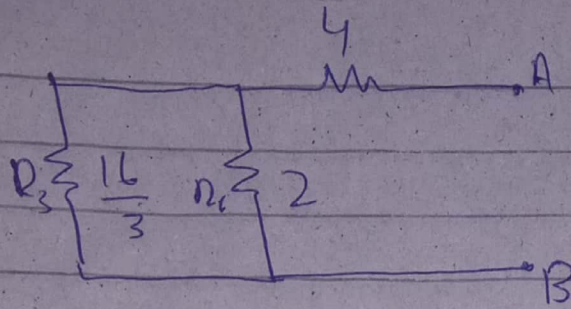 4
A
R3 16/3 R1 2
B